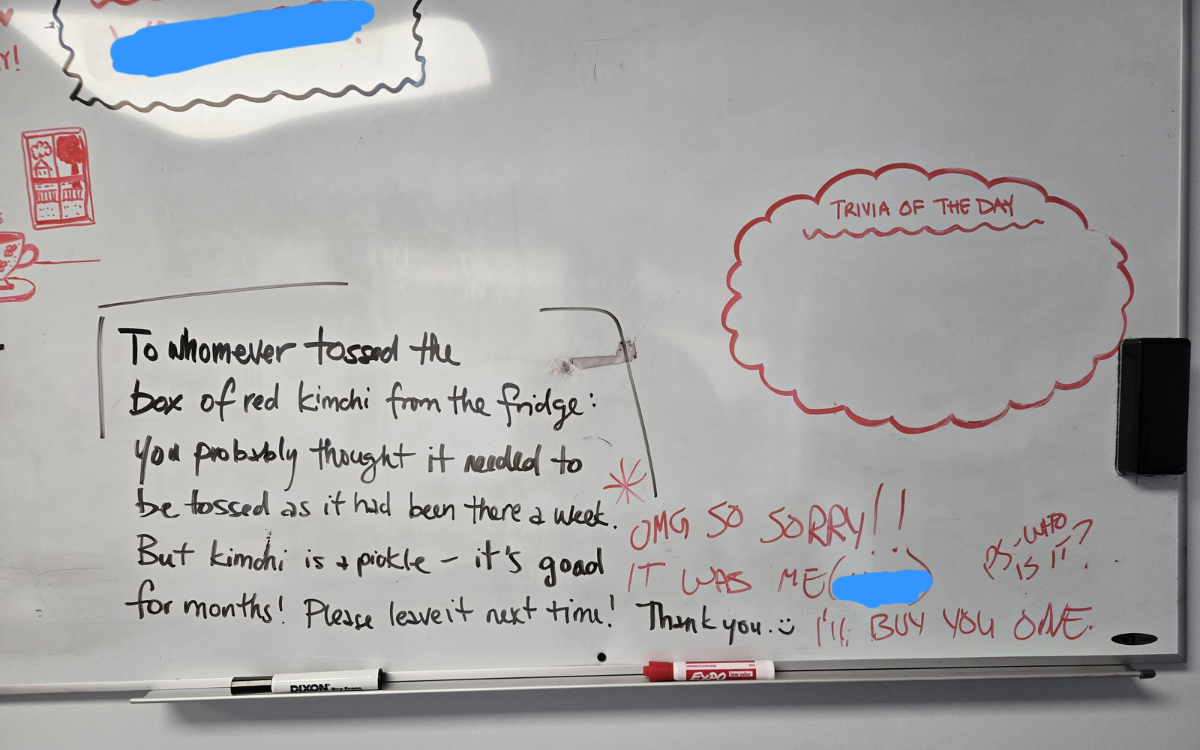 Y!
TRIVIA OF THE DAY
To whomever tossed the
box of red kimchi from the fridge:
You probably thought it needed to
be tossed as it had been there a week.
But kimchi is a pickle – it's good
for months! Please leave it next time! Thank you. :)
OMG SO SORRY!!
IT WAS ME ( )
I'll BUY YOU ONE.
PS-WHO
IS IT?
DIXON
EXPO
low odor